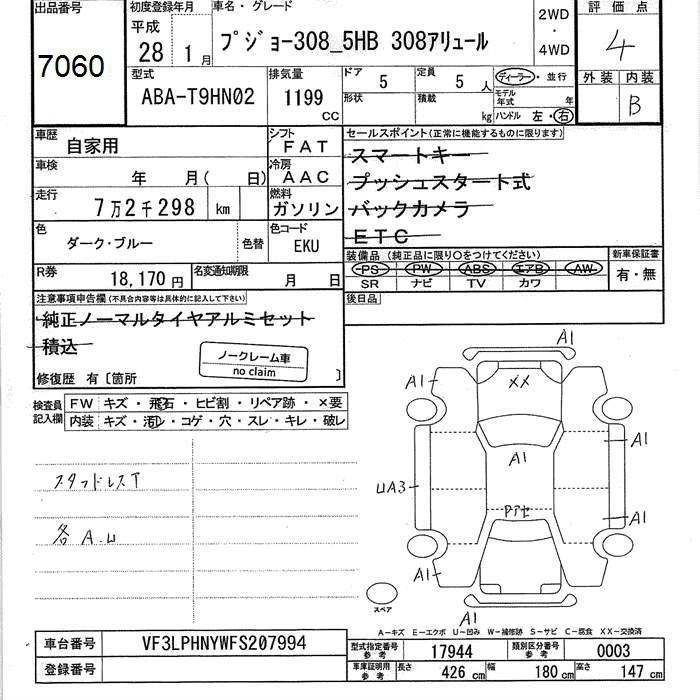 出品番号
7060
初度登録年月
平成
28 1月
車名・グレード
プジョー308_5HB 308アリュール
2WD
・
4WD
評価点
4
外装 内装
B
型式
ABA-T9HN02
排気量
1199
CC
ドア 5
形状
定員 5 人
積載 kg
ディーラー・並行
モデル年式 年
ハンドル 左・右
車歴
自家用
シフト
FAT
車検
年 月( 日)
冷房
AAC
走行
7万2千298 km
燃料
ガソリン
色
ダーク・ブルー
色替
色コード
EKU
R券
18,170円
名変通知期限
月 日
セールスポイント(正常に機能するものに限ります)
スマートキー
プッシュスタート式
バックカメラ
ETC
装備品(純正品に限り○をつけてください)
PS PW ABS エアB AW
SR ナビ TV カワ
新車保証書
有・無
後日品
注意事項申告欄(不具合内容等は具体的に記入して下さい)
純正ノーマルタイヤアルミセット
積込
ノークレーム車
no claim
修復歴 有〔箇所 〕
検査員記入欄
FW キズ・飛石・ヒビ割・リペア跡・×要
内装 キズ・汚レ・コゲ・穴・スレ・キレ・破レ
スタッドレスT
各A.U
A1
A1
XX
A1
A1
UA3
Pｱｾ
A1
A1
A1
スペア
A-キズ E-エクボ U-凹み W-補修跡 S-サビ C-腐食 XX-交換済
車台番号 VF3LPHNYWFS207994
登録番号
型式指定番号 参考 17944
類別区分番号 参考 0003
車庫証明用 参考 長さ 426cm 幅 180cm 高さ 147cm